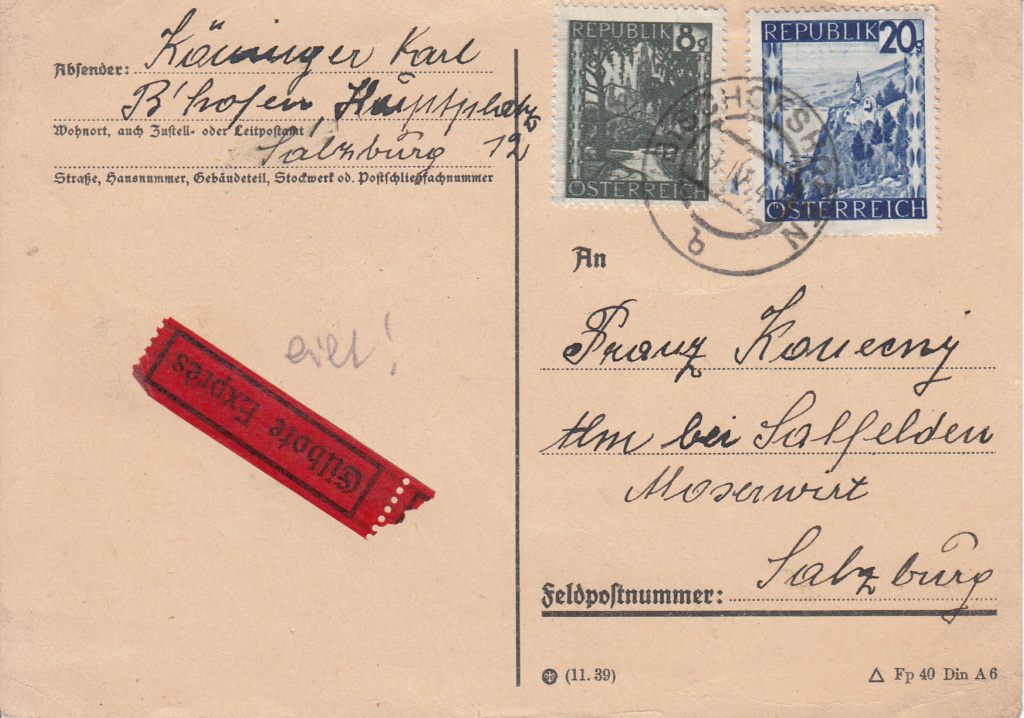 Absender: Köninger Karl
B'hofen, Hauptplatz
Wohnort, auch Zustell- oder Leitpostamt
Salzburg 12
Straße, Hausnummer, Gebäudeteil, Stockwerk od. Postschließfachnummer
eilt!
Eilbote Exprès
REPUBLIK 8g
ÖSTERREICH
REPUBLIK 20g
ÖSTERREICH
BISCHOFSHOFEN
An
Franz Konecny
Alm bei Salfelden
Moserwirt
Salzburg
Feldpostnummer:
(11.39)
Fp 40 Din A 6